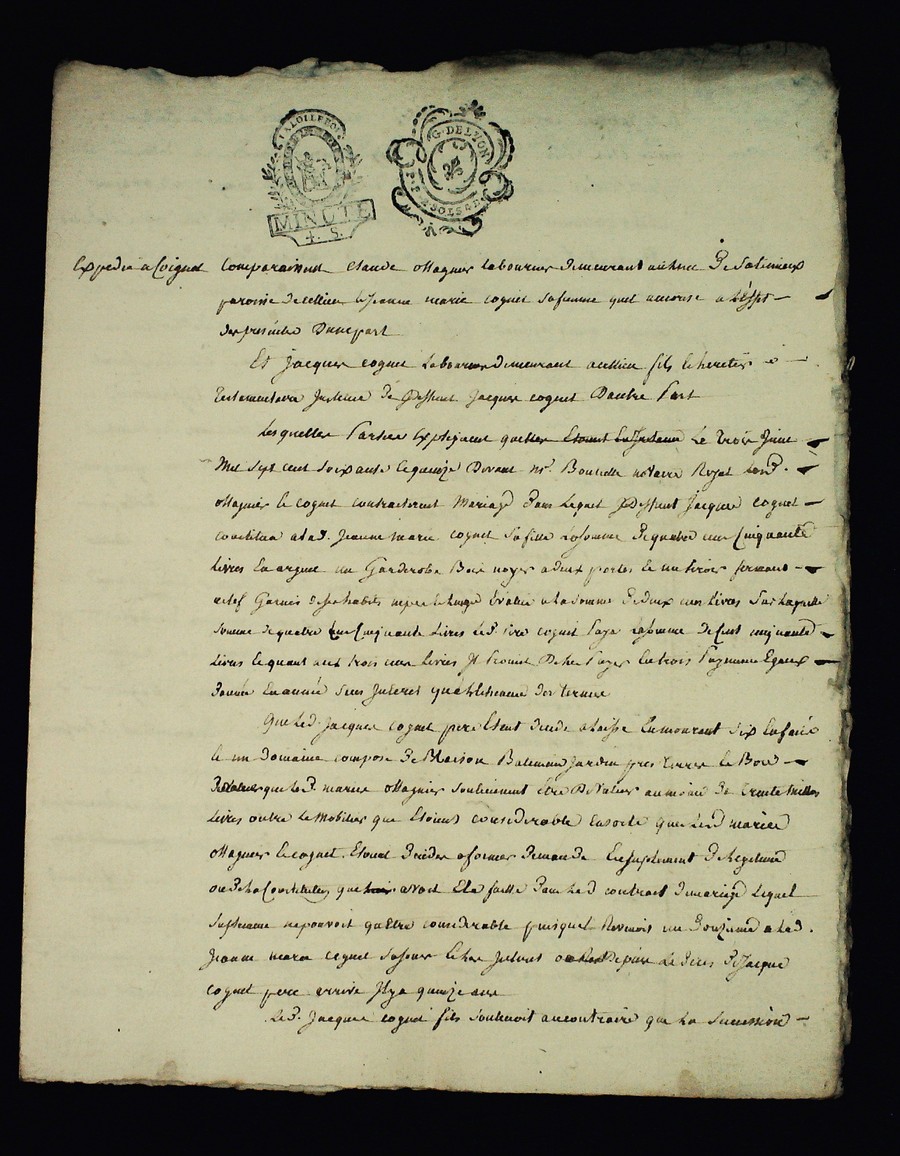 LA LOI LE ROI
MINUTE
4. S.
G. DE LYON
Expedié a Coignet Comparaissent Claude Magnier Laboureur demeurant au lieu De
paroisse de cellieu & Jeanne marie cognet sa femme quil autorise a L'effet
des presentes Dune part
Et Jacques cognet Laboureur demeurant a cellieu fils & heretier
testamentaire De Deffunt Jacques cognet Dautre Part
Lesquelles Parties Expliquent quelles Le Trois Juin
Mil sept cent soixante & quinze Devant Mr. notaire Royal Lesd.
Magnier & cognet contracterent Mariage Dans Lequel Deffunt Jacques cognet
constitua a lad. Jeanne marie cognet sa fille La somme De quatre cent Cinquante
Livres En argent un Garderobe Bois noyer a deux portes & un tiroir fermant
a clef Garnis De ses habits & Linge Evalué a La somme De deux cent Livres Sur Laquelle
somme de quatre Cent Cinquante Livres Led. Pere cognet Paya La somme De Cent cinquante
Livres & quant aux trois cent Livres Il Promit De les Payer En trois Payements Egaux
Dannée En année sans Interet qua Lecheance des termes
Que Led. Jacques cognet pere Etant Decedé a Laissé En mourant six Enfants
& un Domaine composé De Maison Batiment Jardin prés terres & Bois
que Led. mariés Magnier soutiennent être De Valeur au moins De trente Milles
Livres outre Le Mobilier qui Etoient considerable Ensorte que Lesd. mariés
Magnier & cognet Etoient Decidés a former Demande En suplement De Legitime
ou De La Constitution qui avoit Eté faitte Dans Led. contrat De mariage Lequel
suplement ne pouvoit qu'être considerable puisquil Revenoit un Douzieme a Lad.
Jeanne marie cognet Depuis Le Deces De Jacques
cognet pere arrivé Il y a quinze ans
Led. Jacques cognet fils soutenoit au contraire que La succession